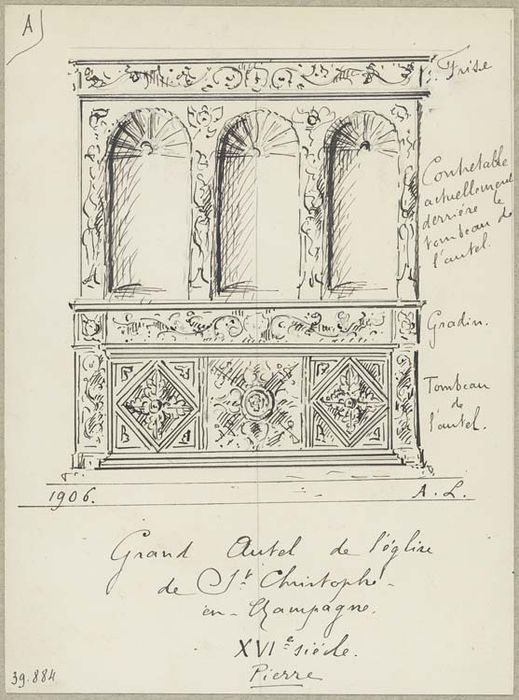 A
Frise
Contretable
actuellement
derrière le
tombeau de
l'autel.
Gradin.
Tombeau
de
l'autel.
1906.
A. L.
Grand Autel de l'église
de St. Christophe-
en-Champagne.
XVIe siècle.
Pierre
39.884